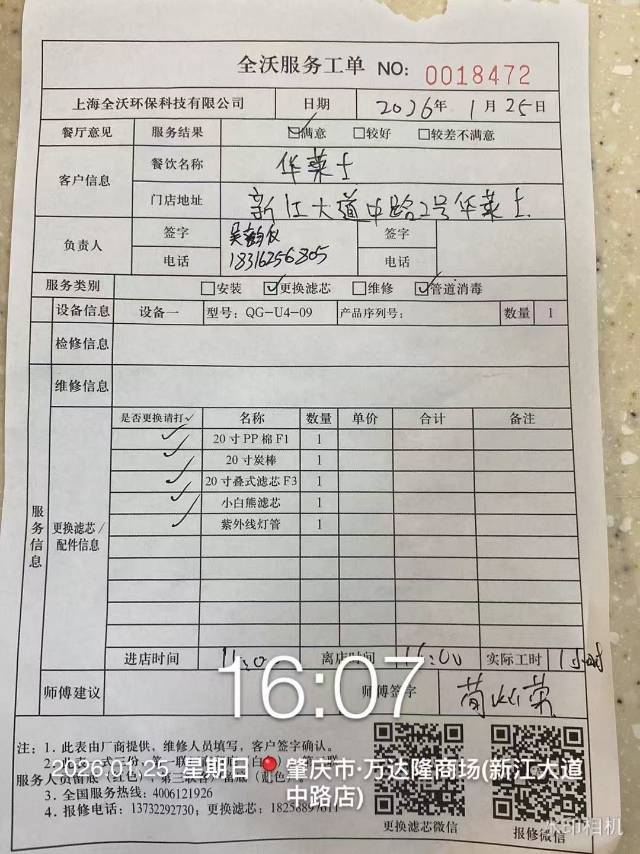 全沃服务工单 NO: 0018472
上海全沃环保科技有限公司 日期 2026年 1月25日
餐厅意见 服务结果 满意 较好 较差不满意
客户信息 餐饮名称 华莱士
门店地址 新江大道中路2号华莱士
负责人 签字 签字
电话 18316256805 电话
服务类别 安装 更换滤芯 维修 管道消毒
设备信息 设备一 型号: QG-U4-09 产品序列号: 数量 1
检修信息
维修信息
服务信息
更换滤芯/配件信息
是否更换请打✓ 名称 数量 单价 合计 备注
✓ 20寸PP棉F1 1
✓ 20寸炭棒 1
✓ 20寸叠式滤芯F3 1
✓ 小白熊滤芯 1
✓ 紫外线灯管 1
进店时间 离店时间 16:00 实际工时 1小时
师傅建议 师傅签字
16:07
注: 1. 此表由厂商提供, 维修人员填写, 客户签字确认。
服务人员留底
3. 全国服务热线: 4006121926
4. 报修电话: 13732292730; 更换滤芯:
更换滤芯微信 报修微信
2026.01.25 星期日 肇庆市·万达隆商场(新江大道中路店)
水印相机